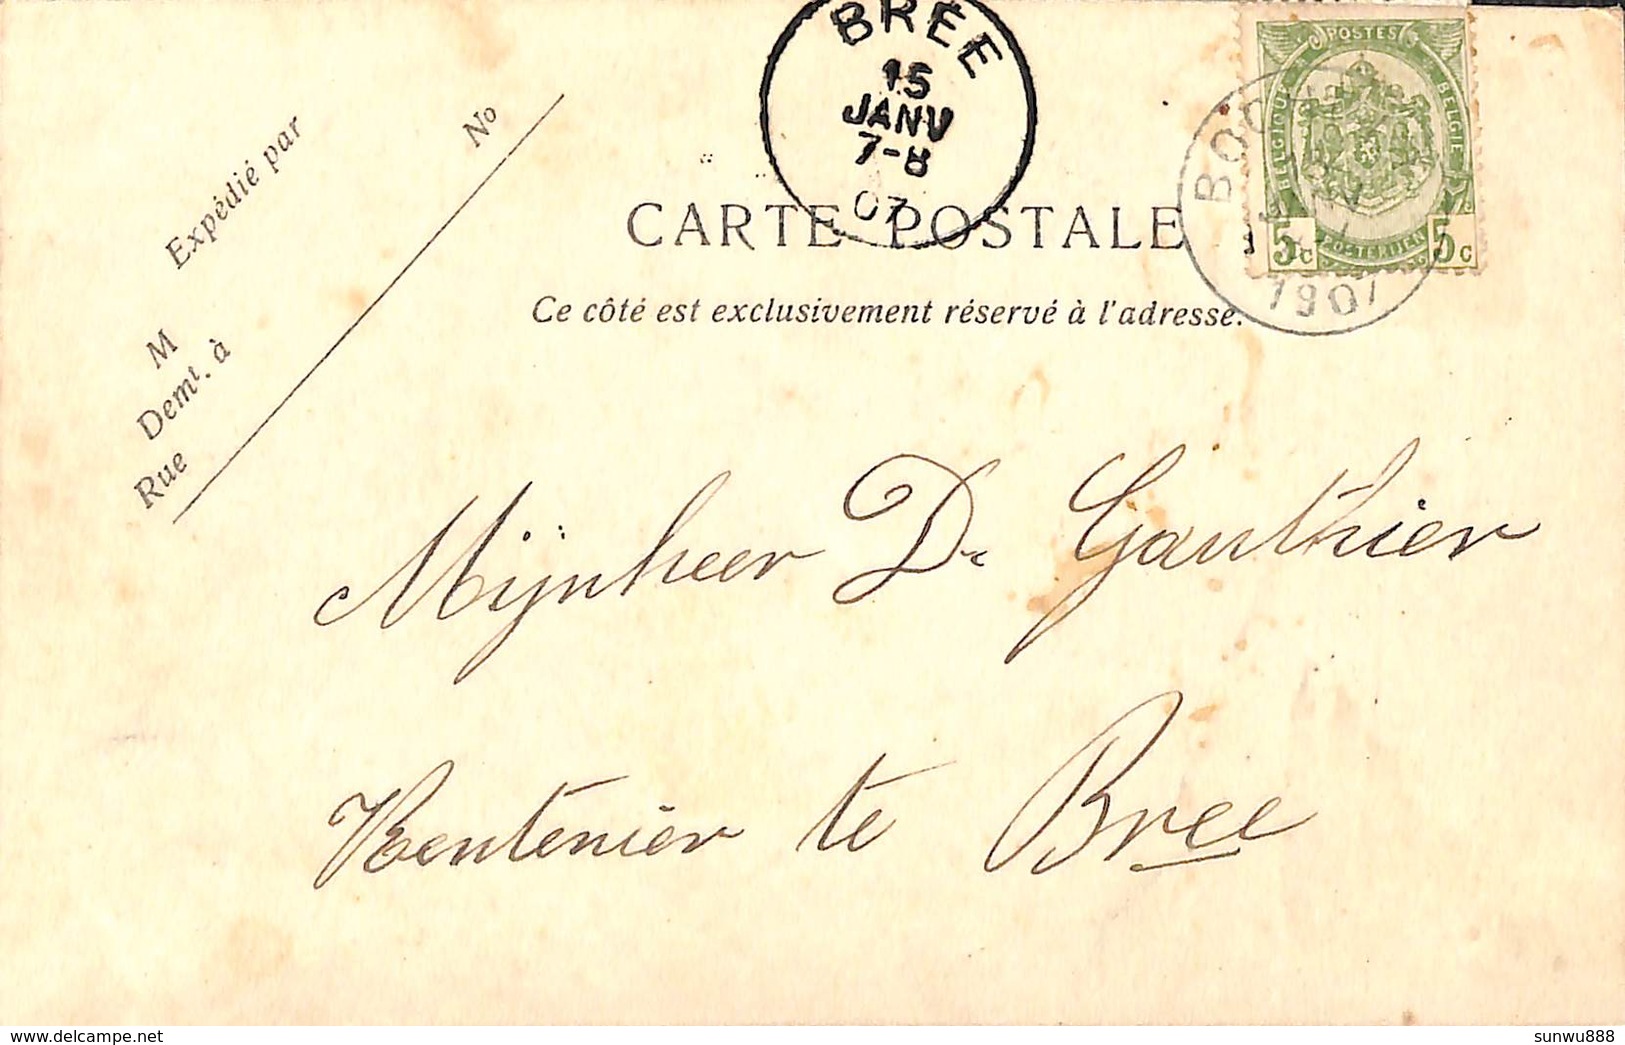 BREE
15
JANV
7-8
07
POSTES
BELGIQUE
BELGIE
5c
POSTERIJEN
5c
1907
Expédié par
No
M
Demt. à
Rue
CARTE POSTALE
Ce côté est exclusivement réservé à l'adresse.
Mijnheer Dr Gauthier
Rentenier te Bree
sunwu888